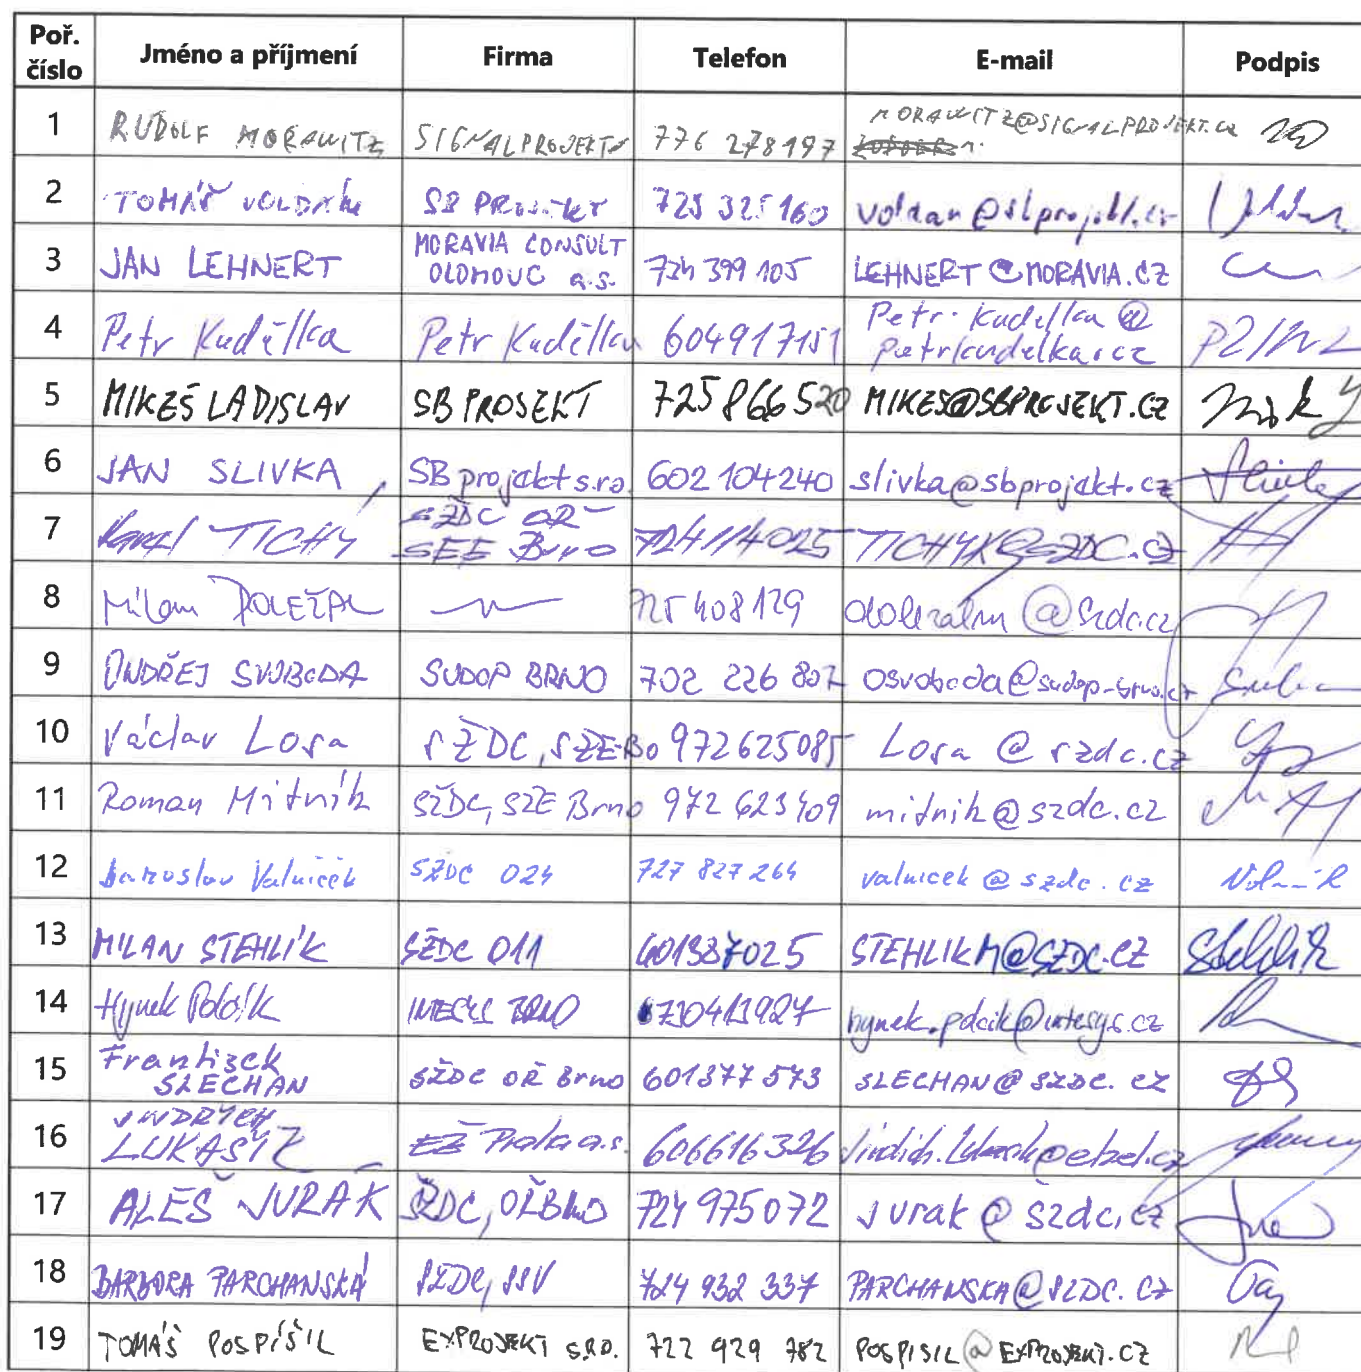 Poř. číslo Jméno a příjmení Firma Telefon E-mail Podpis
1 RUDOLF MORAWITZ SIGNALPROJEKT 776 278 197 MORAWITZ@SIGNALPROJEKT.CZ
2 TOMÁŠ VOLDÁN SB PROJEKT 725 325 160 voldan@sbprojekt.cz
3 JAN LEHNERT MORAVIA CONSULT OLOMOUC a.s. 724 399 105 LEHNERT@MORAVIA.CZ
4 Petr Kudělka Petr Kudělka 604917151 Petr.Kudelka@petrkudelka.cz
5 MIKEŠ LADISLAV SB PROJEKT 725 866 520 MIKES@SBPROJEKT.CZ
6 JAN SLIVKA SB projekt s.r.o. 602 104 240 slivka@sbprojekt.cz
7 Karel TICHÝ SŽDC OŘ SEE Brno 724114025 TICHYK@SZDC.CZ
8 Milan DOLEŽAL 725 408 129 dolezalm@szdc.cz
9 ONDŘEJ SVOBODA SUDOP BRNO 702 226 807 osvoboda@sudop-brno.cz
10 Václav Losa SŽDC, SŽE Bo 972625085 Losa@szdc.cz
11 Roman Mitník SŽDC, SŽE Brno 972 623 409 mitnik@szdc.cz
12 Jaroslav Valníček SŽDC 024 727 827 264 valnicek@szdc.cz
13 MILAN STEHLÍK SŽDC 011 601387025 STEHLIKM@SZDC.CZ
14 Hynek Pdcík BRNO 730411927 hynek.pdcik@intesys.cz
15 František SLECHAN SŽDC OŘ Brno 601377573 SLECHAN@SZDC.CZ
16 JINDŘICH LUKÁŠ EŽ Praha a.s. 606616326 Jindrich.Lukas@elzel.cz
17 ALEŠ JURÁK SŽDC, OŘ Brno 724 975 072 jurak@szdc.cz
18 BARBORA PARCHANSKÁ SŽDC, SSV 724 932 337 PARCHANSKA@SZDC.CZ
19 TOMÁŠ POSPÍŠIL EXPROJEKT S.R.O. 722 929 782 POSPISIL@EXPROJEKT.CZ